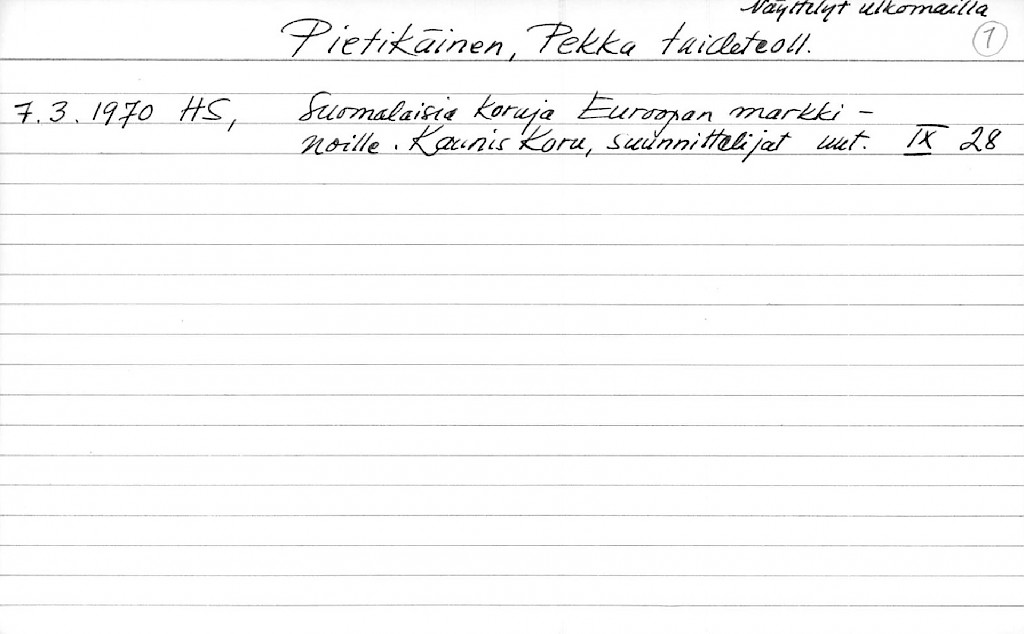 Näyttelyt ulkomailla
Pietikäinen, Pekka taideteoll. 1
7.3.1970 HS, Suomalaisia koruja Euroopan markki-
noille. Kaunis Koru, suunnittelijat uut. IX 28